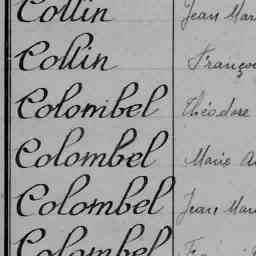 Collin Jean Mar
Collin Franço
Colombel Théodore
Colombel Marie A
Colombel Jean Mar
Colombel